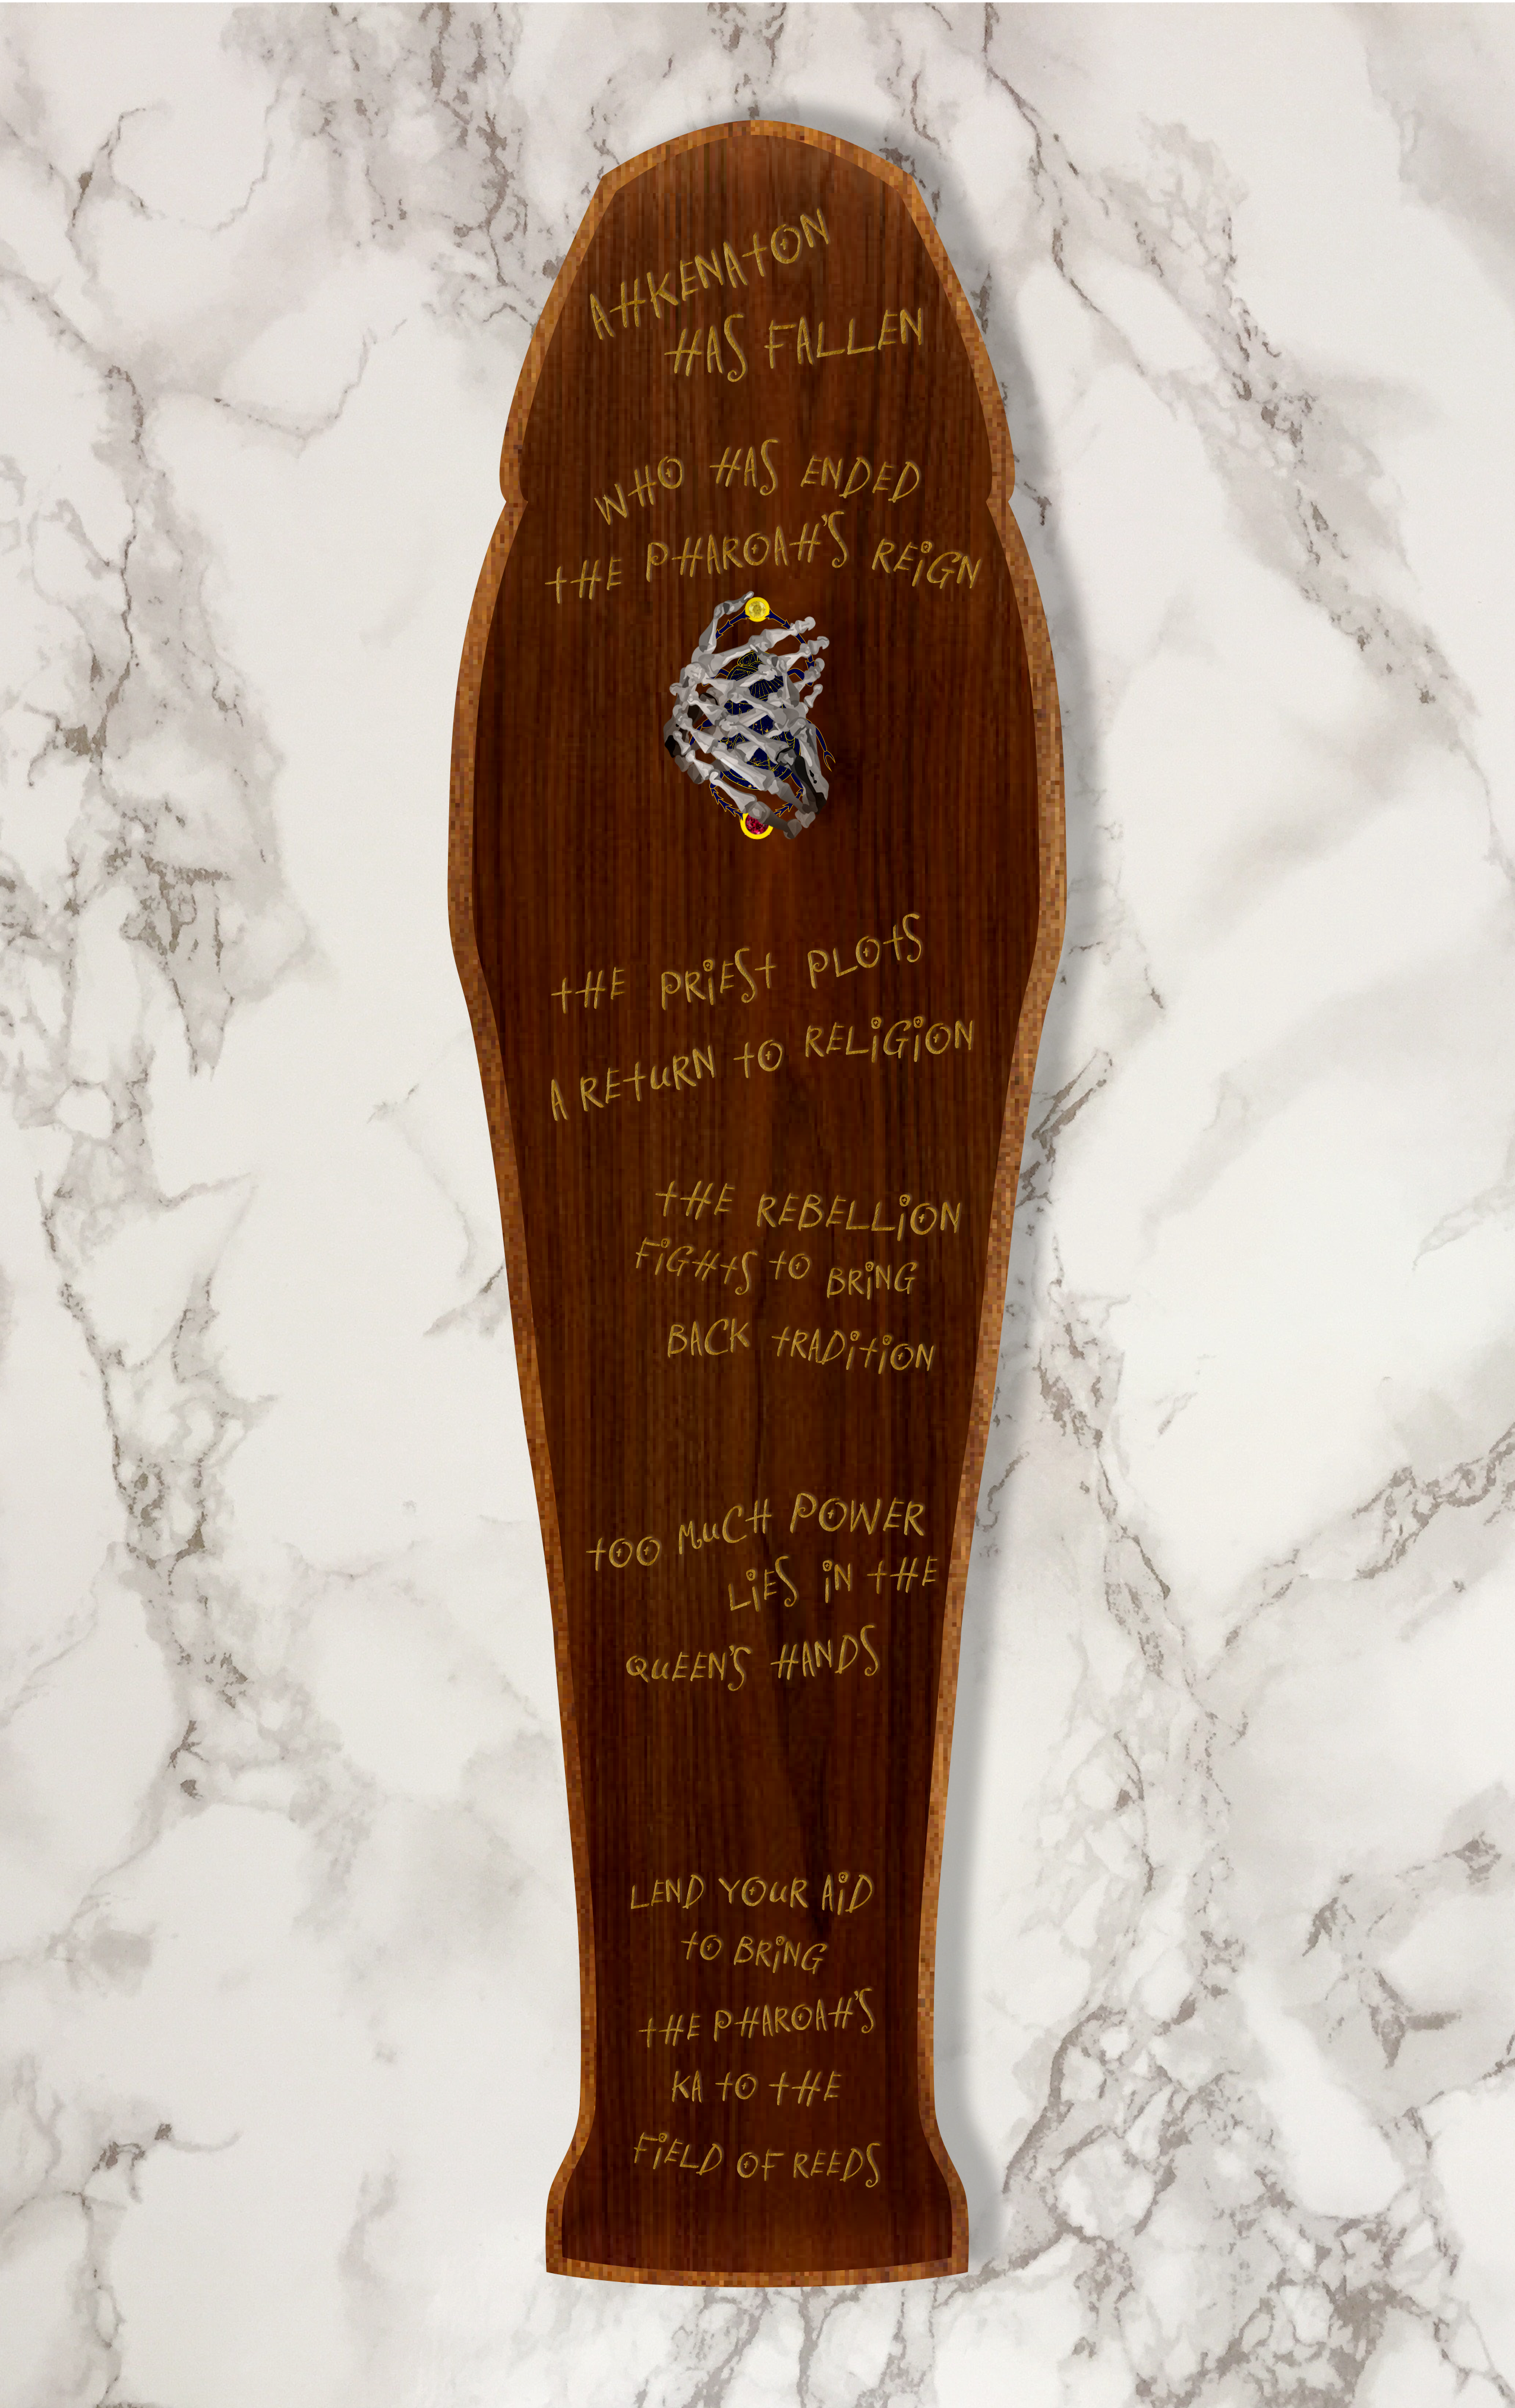 AHKENATON
HAS FALLEN
WHO HAS ENDED
THE PHAROAH'S REIGN
THE PRIEST PLOTS
A RETURN TO RELIGION
THE REBELLION
FIGHTS TO BRING
BACK TRADITION
TOO MUCH POWER
LIES IN THE
QUEEN'S HANDS
LEND YOUR AID
TO BRING
THE PHAROAH'S
KA TO THE
FIELD OF REEDS